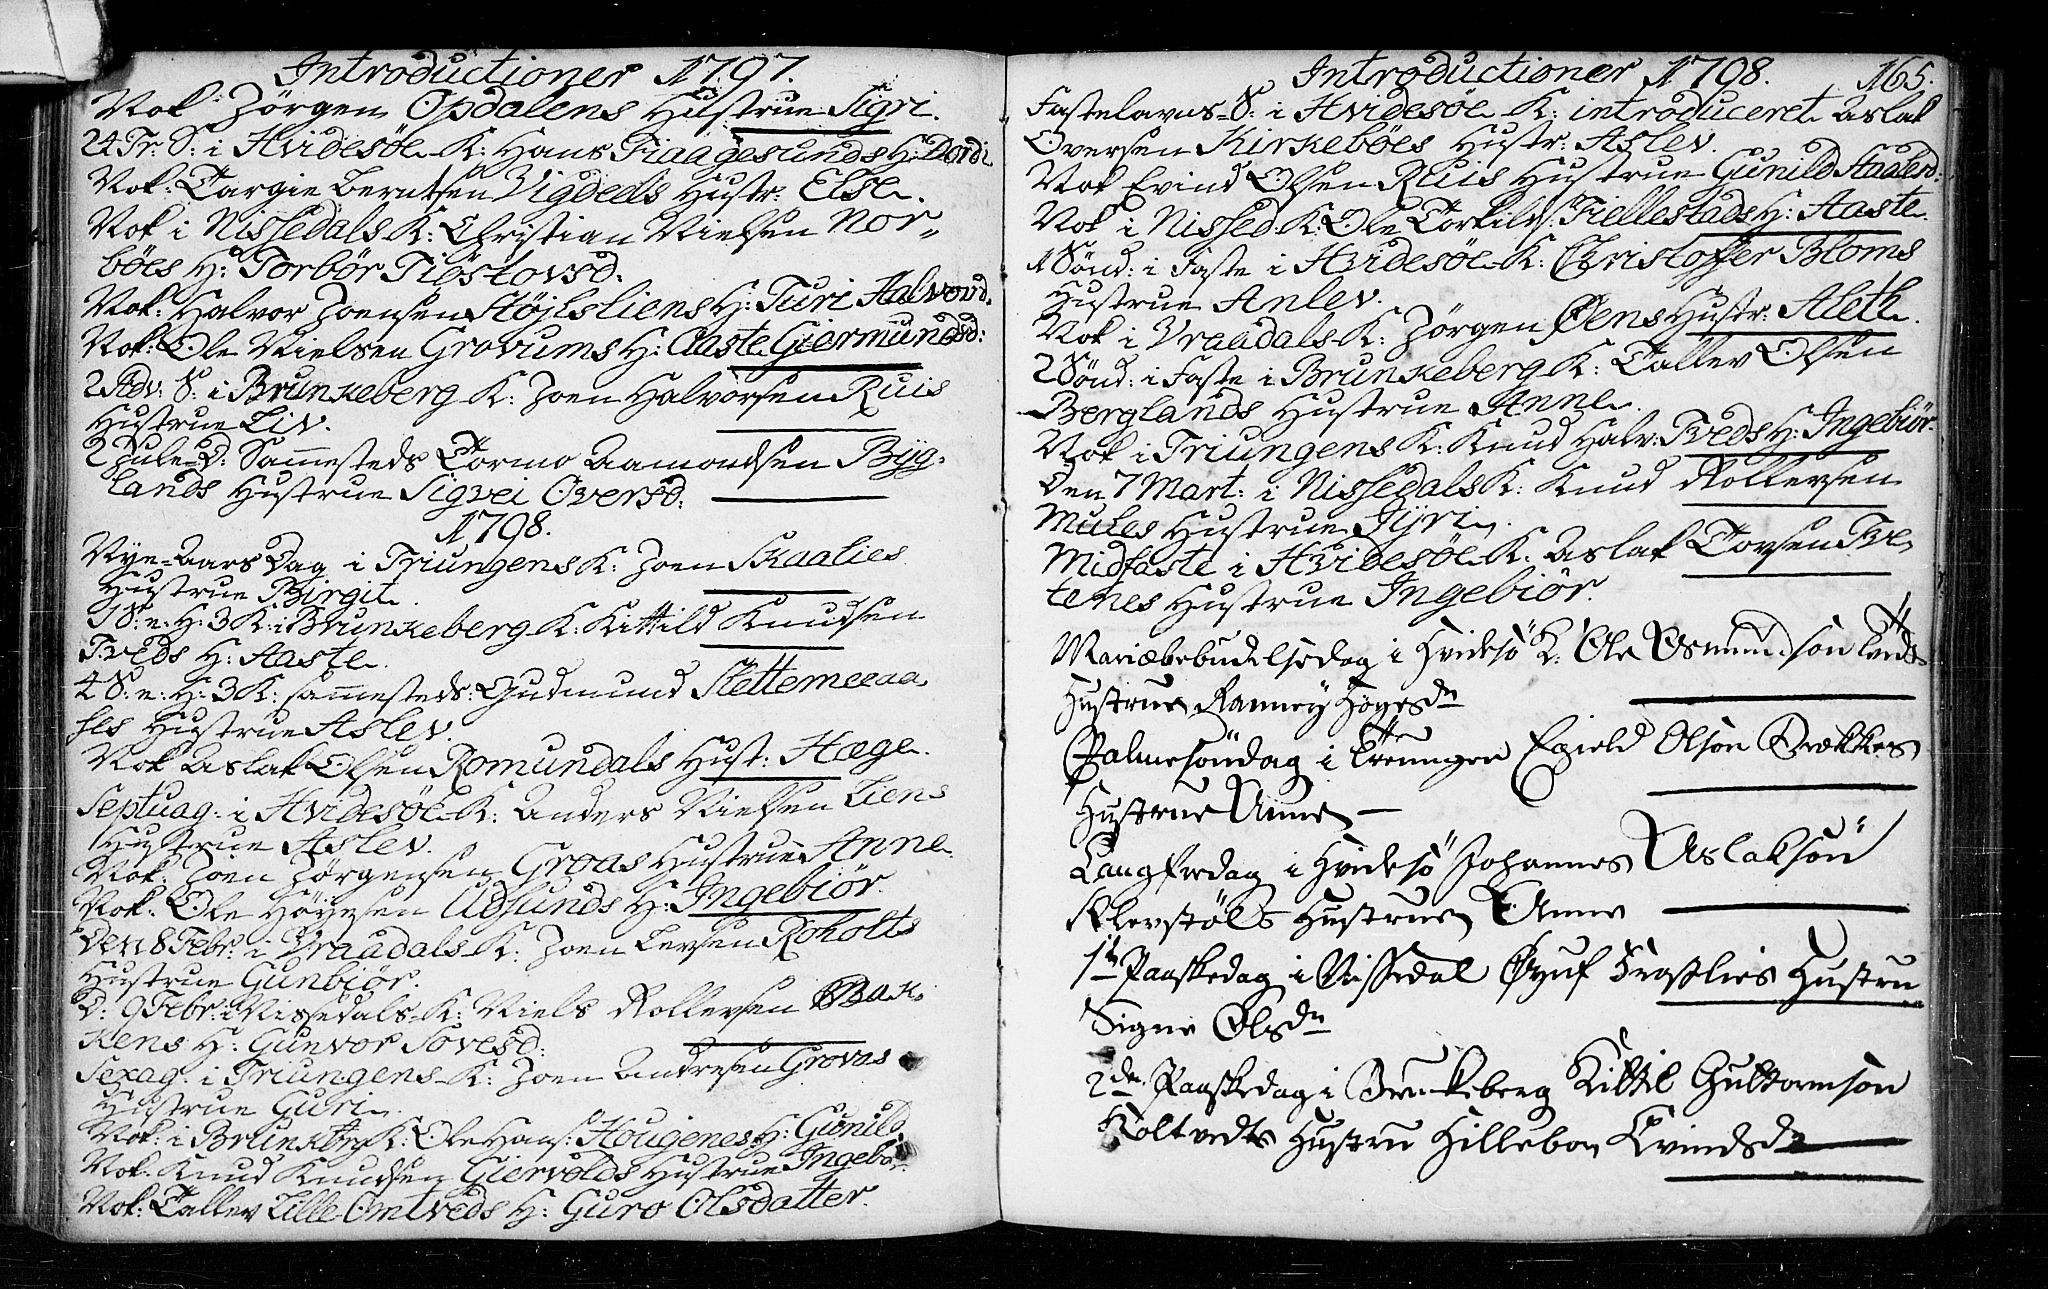 Introductioner 1797.
Nok: Jörgen Opdalens Hustrue Sigri.
24 Tr: S: i Hvidesöe K: Hans Fiaagesunds H: Dordi.
Nok: Targie Berntsen Vigdeels Hustr: Else.
Nok i Nissedals K: Christian Nielsen Nor-
böes H: Torbör Tiöstovsd.
Nok: Halvor Joensen Höjlsliens H: Turi Halvord.
Nok: Ole Nielsen Grovums H: Aaste Giermundsd:
2 Adv: S: i Brunkeberg K: Joen Halvorsen Ruis
Hustrue Liv.
2 Jule-D: Sammesteds Tormo Aamondsen Byg-
lands Hustrue Sigvei Oversd:
1798.
Nye-Aars Dag i Triungens K: Joen Skaalies
Hustrue Birgit.
1 S: e: H: 3 K: i Brunkeberg K: Kittild Knudsen
Tveds H: Aaste.
4 S: e: H: 3 K: sammesteds: Gudmund Slettemeeaa-
ses Hustrue Aslev.
Nok Aslak Olsen Romundals Hust: Hæge.
Septuag: i Hvidesöe K: Anders Nielsen Liens
Hustrue Aslev.
Nok: Joen Jörgensen Groas Hustrue Anne.
Nok: Ole Höyesen Udsunds H: Ingebiör.
Den 8 Febr: i Vraadals K: Joen Levsen Roholts
Hustrue Gunbiör.
D: 9 Febr: i Nissedals K: Niels Rollevsen Bak-
kens H: Gunvor Sovesd:
Sexag: i Triungens K: Joen Andresen Grovas
Hustrue Guri.
Nok: i Brunkbrg K: Ole Hans: Hougenes H: Gunild.
Nok: Knud Knudsen Giervolds Hustrue Ingebör.
Nok: Tallev Lille Omtveds H: Guro Olsdatter.
Introductioner 1798. 165.
Fastelavns-S: i Hvidesöe K: introduceret Aslak
Oversen Kirkeböes Hustr: Aslev.
Nok Evind Olsen Ruis Hustrue Gunild
Nok i Nissed. K: Ole Torkilds: Fiellestads H: Aaste.
1 Sönd: i Faste i Hvidesöe K: Christoffer Bloms
Hustrue Anlev.
Nok i Vraadals K: Jörgen Öens Hustr: Aleth.
2 Sönd: i Faste i Brunkeberg K: Tallev Olsen
Berglands Hustrue Anne.
Nok i Triungens K: Knud Halv: Tveds H: Ingebiör.
Den 7 Mart: i Nissedals K: Knud Rollevsen
Mules Hustrue Jyri.
Midfaste i Hvidesöe K: Aslak Tovsen Tve-
tenes Hustrue Ingebiör.
Mariæbebudelsedag i Hvidesö K: Ole Osmundsön
Hustrue Ranney Höyesdn
Palmesöndag i Tröungen Egield Olsön Brækkes
Hustrue Anne
Langfredag i Hvidesö Johannes Aslaksön
Klevstöls Hustrue Anne
1te Paaskedag i Nissedal Öyuf Froslies Hustru
Signe Olsdn
2den Paaskedag i Brunkeberg Kittil Guttormsön
Koltvedts Hustru Hillebor Evindsdn